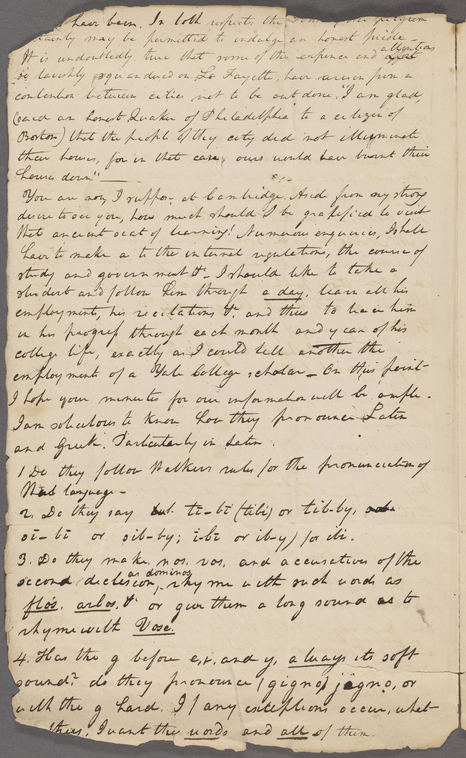 have been. In both respects the pilgrim
may be permitted to indulge an honest pride —
It is undoubtedly true that some of the expence and attention
so lavishly squandered on La Fayette, have arisen from a
contention between cities not to be out done. "I am glad,
(said an honest Quaker of Philadelphia to a citizen of
Boston) that the people of thy city did not illuminate
their houses, for in that case, ours would have burnt their
houses down" —
You are now, I suppose, at Cambridge. Aside from my strong
desire to see you, how much should I be gratified to visit
that ancient seat of learning! Numerous enquiries, I shall
have to make as to the internal regulations, the course of
study and government &c. I should like to take a
student and follow him through a day, learn all his
employment, his recitations &c and thus to trace him
in his progress through each month and year of his
college life, exactly as I could tell another the
employment of a Yale College scholar — On this point
I hope your minutes for our information will be ample.
I am solicitous to know how they pronounce Latin
and Greek. Particularly in Latin.
1 Do they follow Walkers rules for the pronunciation of
that language —
2. Do they say tī-bī (tibi) or tib-by,
sī-bī or sib-by; i-bi or ib-y) for ibi.
3. Do they make nos. vos. and accusatives of the
second declesion, as dominos, rhyme with such words as
flos. arbos. &c or give them a long sound as to
rhyme with Vose.
4. Has the g before e, i, and y, always its soft
sound? do they pronounce (gigno) jigno, or
with the g hard. If any exceptions occur, what
they, I want the words and all of them.